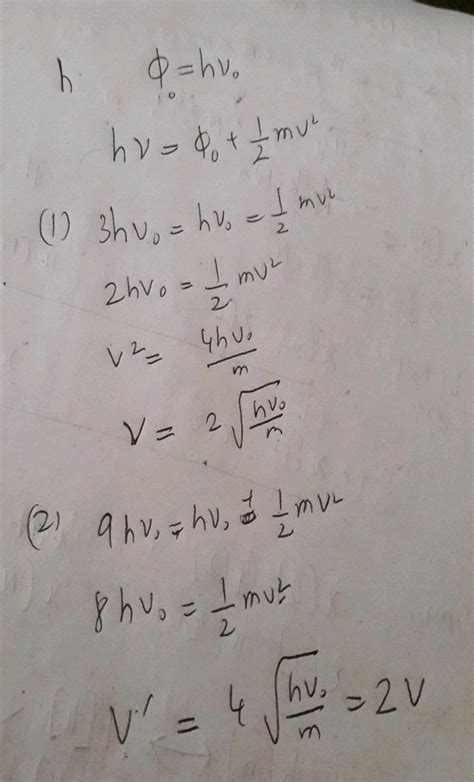 h. ϕ₀ = hν₀
hν = ϕ₀ + 1/2 mv²
(1) 3hν₀ = hν₀ = 1/2 mv²
2hν₀ = 1/2 mv²
v² = 4hν₀/m
v = 2√(hν₀/m)
(2) 9hν₀ = hν₀ + 1/2 mv²
8hν₀ = 1/2 mv²
v' = 4√(hν₀/m) = 2v